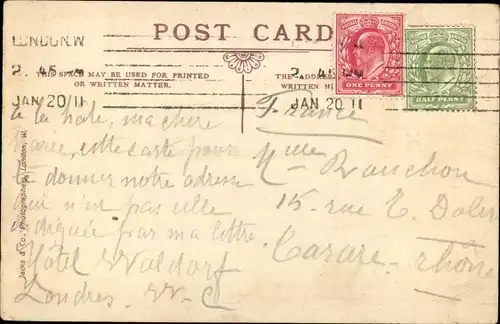 POST CARD
LONDON.W
2. 45 PM
JAN 20 11
2. 45 PM
JAN 20 11
THIS SPACE MAY BE USED FOR PRINTED
OR WRITTEN MATTER.
THE ADDRESS
WRITTEN
ONE PENNY
HALF PENNY
à la hâte, ma chère
Marie, cette carte pour
te donner notre adresse
qui n'est pas celle
indiquée par ma lettre
Hôtel Waldorf
Londres. W-C
France
Mme Ranchon
15. rue E.
Tarare - Rhône
Jacks & Co., Photographers, London, W.